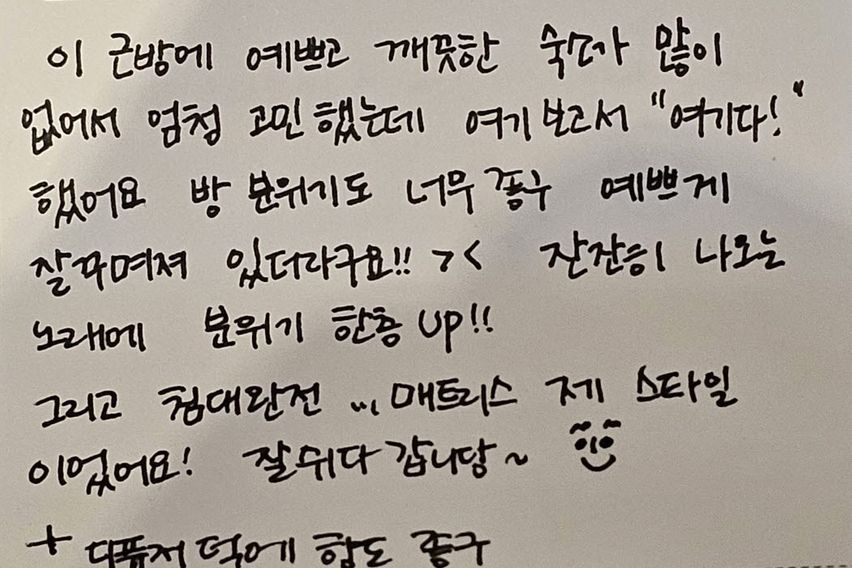 이 근방에 예쁘고 깨끗한 숙소가 많이
없어서 엄청 고민했는데 여기보고서 "여기다!"
했어요 방 분위기도 너무 좋구 예쁘게
잘꾸며져 있더라구요!! ><  잔잔히 나오는
노래에 분위기 한층 UP!!
그리고 침대완전 ... 매트리스 제 스타일
이었어요! 잘쉬다 갑니당~
+ 디퓨저 덕에 향도 좋구